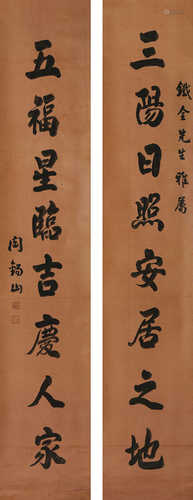 鐵金先生雅屬
三陽日照安居之地
五福星臨吉慶人家
閻錫山